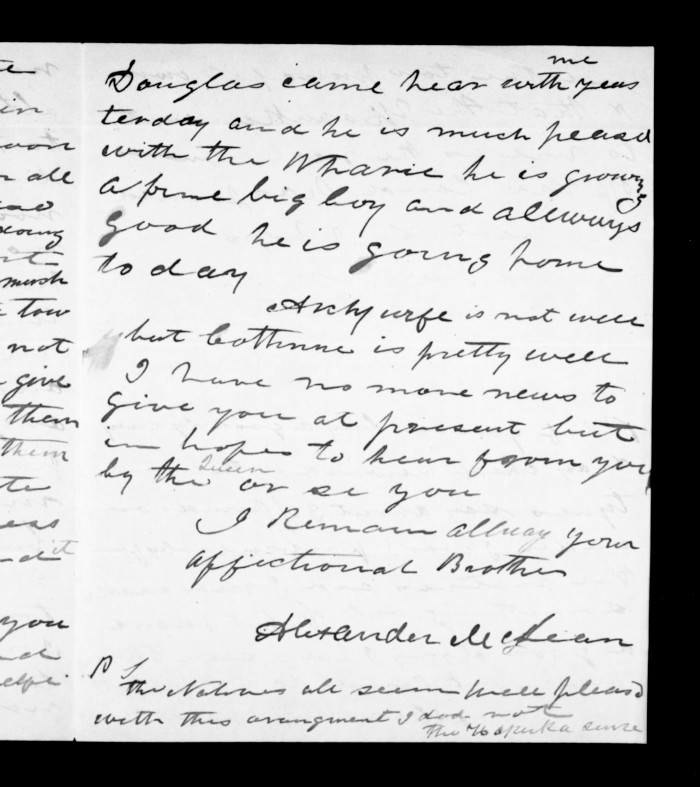 me
Douglas came hear with yeas
terday and he is much pleasd
with the Wharie he is growing
a fine big boy and allways
good he is going home
today
Archy wife is not well
but Cathrine is pretty well
I have no more news to
give you at present but
in hopes to hear from you
Queen
by the or se you
I Remain allway your
affectionat Brother
Alexander McLean
P S
the Natives all seem well pleasd
with this arangment I not
the Hapuka since
te
in
oon
all
doing
much
tow
not
give
them
them
te
eas
it
you